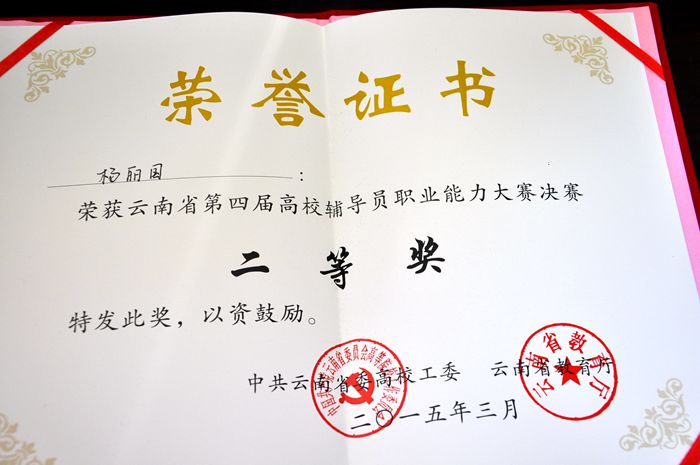 荣誉证书
杨丽国：
荣获云南省第四届高校辅导员职业能力大赛决赛
二等奖
特发此奖，以资鼓励。
中共云南省委高校工委 云南省教育厅
云南省教育厅
二〇一五年三月